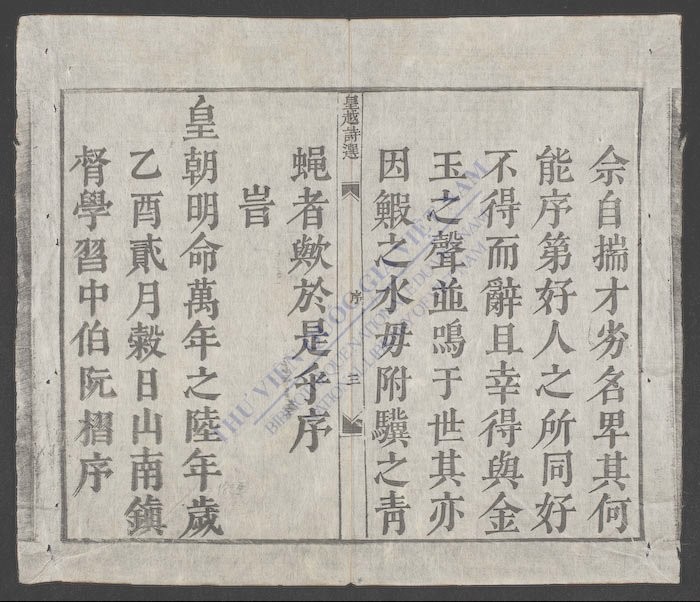 佘自揣才劣名卑其何
能序第好人之所同好
不得而辭且幸得與金
玉之聲並鳴于世其亦
因鰕之水毋附驥之青
皇越詩選
序
三
蝇者歟於是乎序
旹
皇朝明命萬年之陸年歲
乙酉貳月榖日山南鎮
督學習中伯阮㨼序
THƯ VIỆN QUỐC GIA VIỆT NAM
BIBLIOTHÈQUE NATIONALE DU VIETNAM
NATIONAL LIBRARY OF VIETNAM